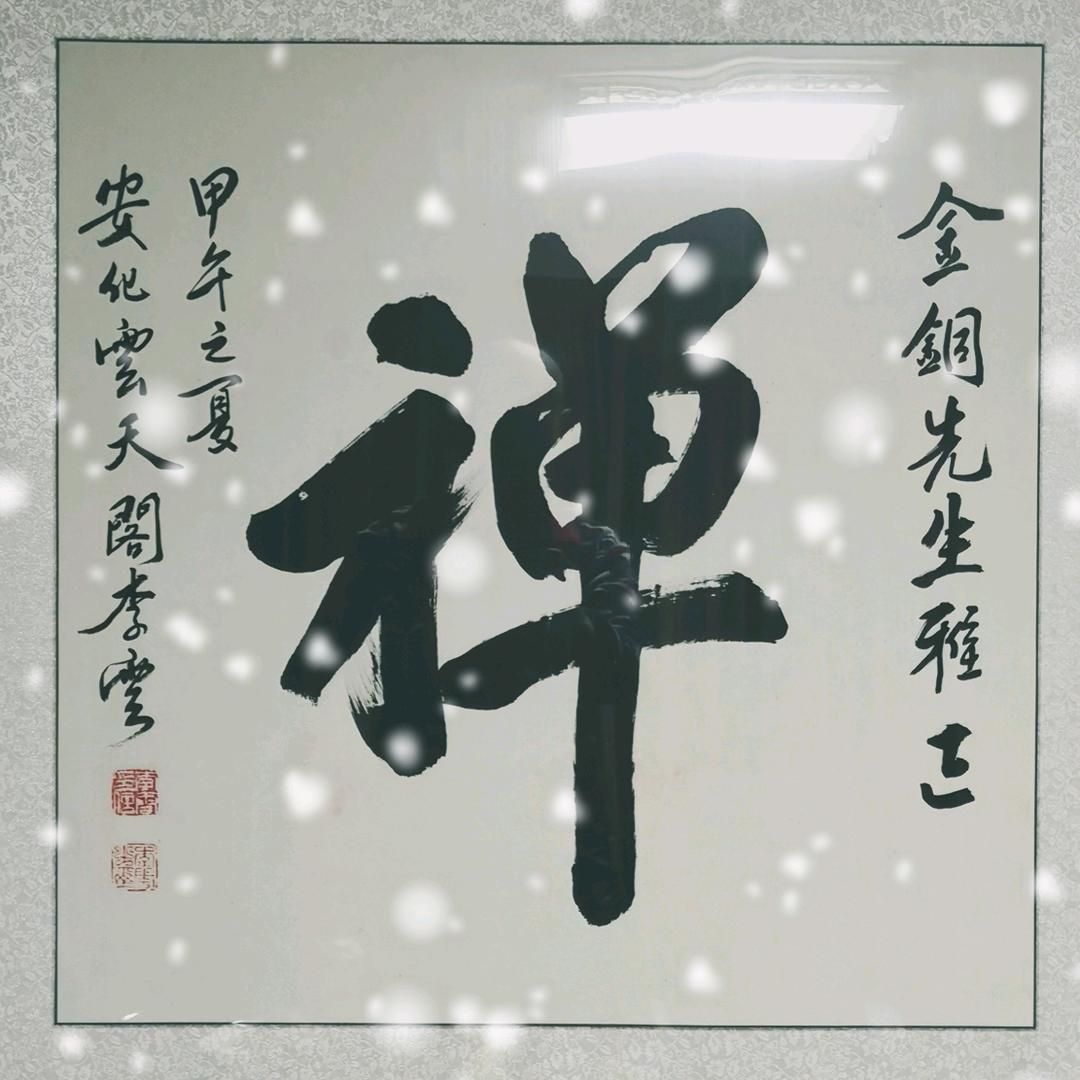 金銅先生雅正
禅
甲午之夏
安化雲天閣李雲